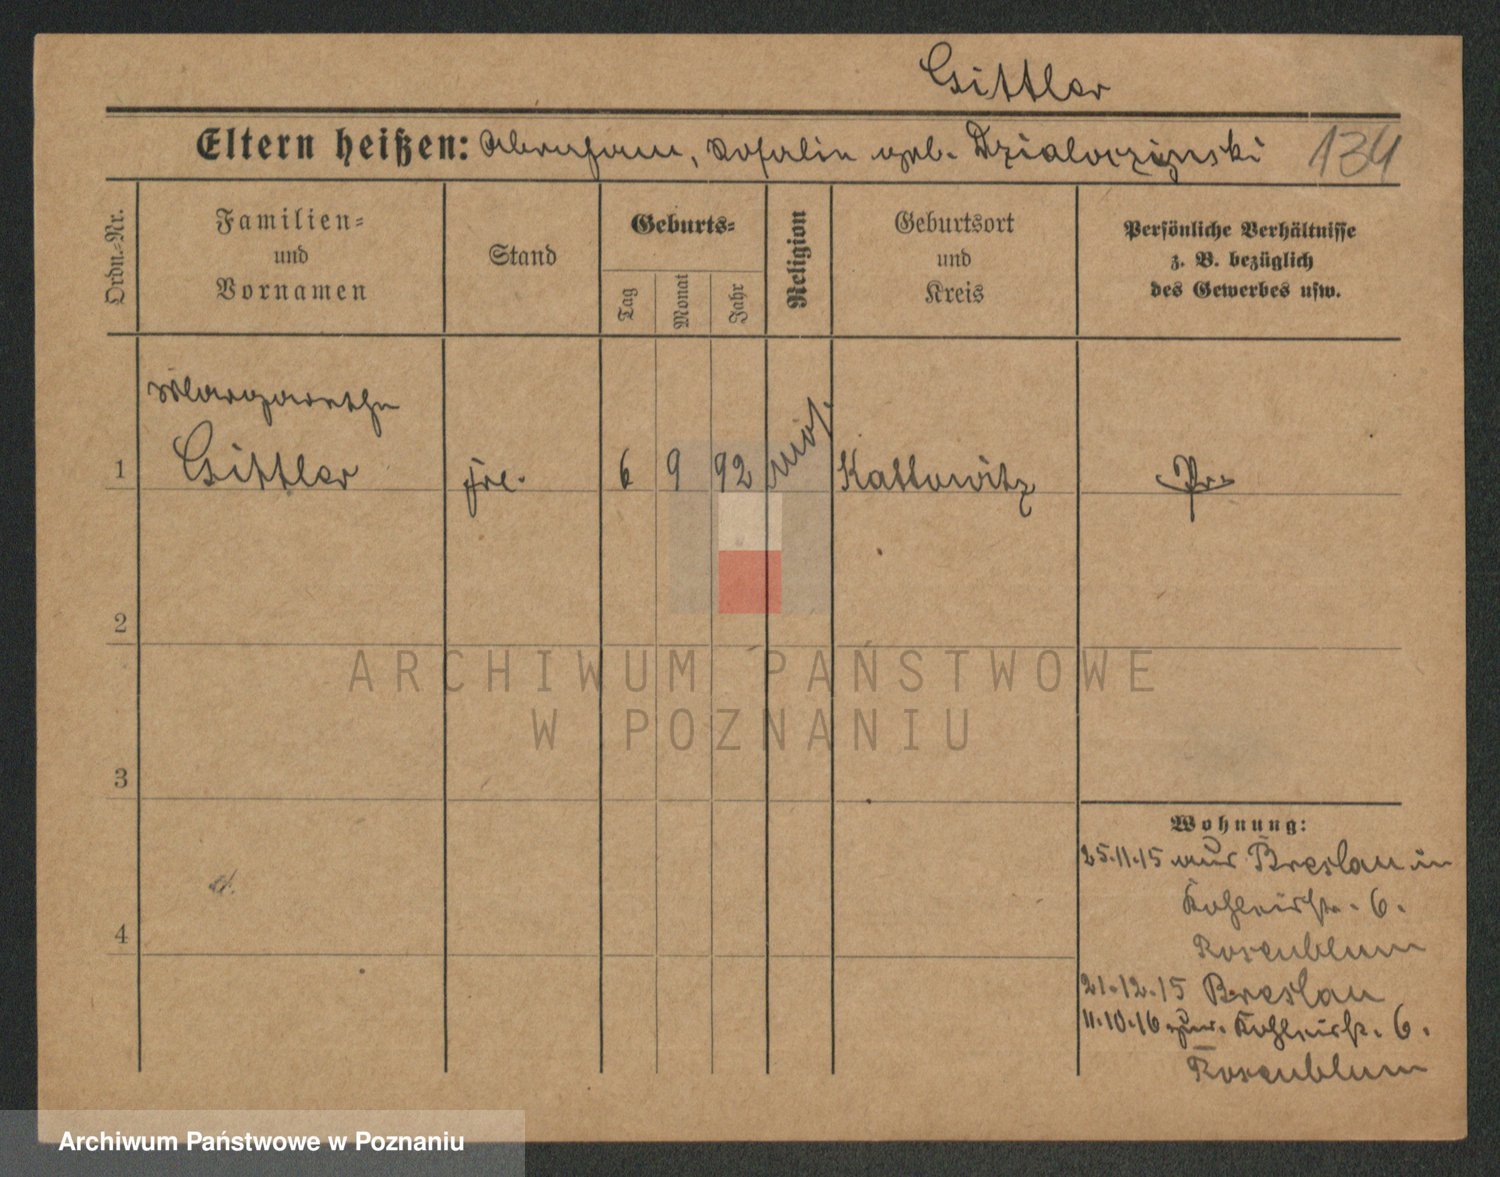 Gittler
Eltern heißen: Abraham, Rosalie geb. Dzialoczynski 134
Ordn.-Nr.
Familien-
und
Vornamen
Stand
Geburts-
Tag
Monat
Jahr
Religion
Geburtsort
und
Kreis
Persönliche Verhältnisse
z. B. bezüglich
des Gewerbes usw.
Margarethe
1 Gittler Frl. 6 9 92 mos. Kattowitz Pr.
2
ARCHIWUM PAŃSTWOWE
W POZNANIU
3
Wohnung:
25.11.15 aus Breslau in
6.
4
Rosenblum
21.12.15 Breslau
11.10.16 zur. 6.
Rosenblum
Archiwum Państwowe w Poznaniu